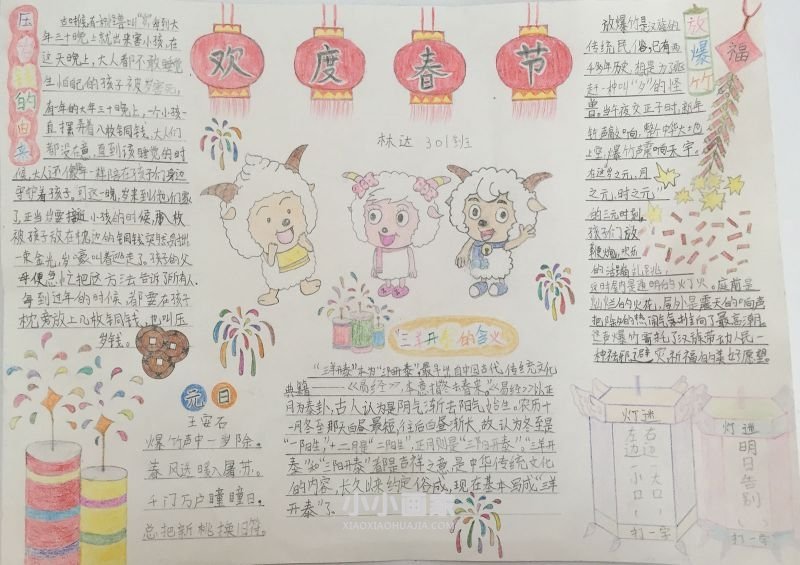 欢度春节
林达 301班
压岁钱的由来
年三十晚上就出来害小孩,在
这天晚上,大人都不敢睡觉
生怕自己的孩子被岁害死,
有一年的大年三十晚上,一个小孩一
直摆弄着八枚铜钱,大人们
都没在意,直到该睡觉的时
守护着孩子,可这一晚,岁来到他们家
了,正当岁要接近小孩的时候,那八枚
被孩子放在枕边的铜钱突然发出
一束金光,岁尖叫着逃走了。孩子的父
母便急忙把这方法告诉了所有人,
每到过年的时候,都要在孩子
枕旁放上几枚铜钱,也叫压
岁钱。
元日
王安石
爆竹声中一岁除,
春风送暖入屠苏。
千门万户曈曈日,
总把新桃换旧符。
三羊开泰的含义
“三羊开泰”本为“三阳开泰”最早出自中国古代,传统文化
典籍——《周易经》,本意指冬去春来。《易经》以正
月为泰卦,古人认为是阴气渐去阳气始生。农历十
一月冬至那天白昼最短,往后白昼渐长,故认为冬至是
“一阳生”,十二月是“二阳生”,正月则是“三阳开泰”。“三羊开
泰”和“三阳开泰”都是吉祥之意,是中华传统文化
的内容,长久以来约定俗成,现在基本写成“三羊
开泰”了。
放爆竹
福
放爆竹是汉族的
传统民俗,已有两
千多年历史,相传是为了驱
赶一种叫“夕”的怪
兽。当午夜交正子时,新年
钟声敲响,整个中华大地
上空,爆竹声震响天宇。
在这岁之元,月
之元,时之元
的三元时刻,
孩子们放
鞭炮,欢乐
这时屋内是通明的灯火,庭前是
灿烂的火花,屋外是震天的响声
把除夕的热闹气氛推向了最高潮。
种祛邪避灾,祈福的美好愿望。
灯迷
左边一小口
右边一大口
(打一字
灯迷
明日告别
(打一字
小小画家
XIAOXIAOHUAJIA.COM